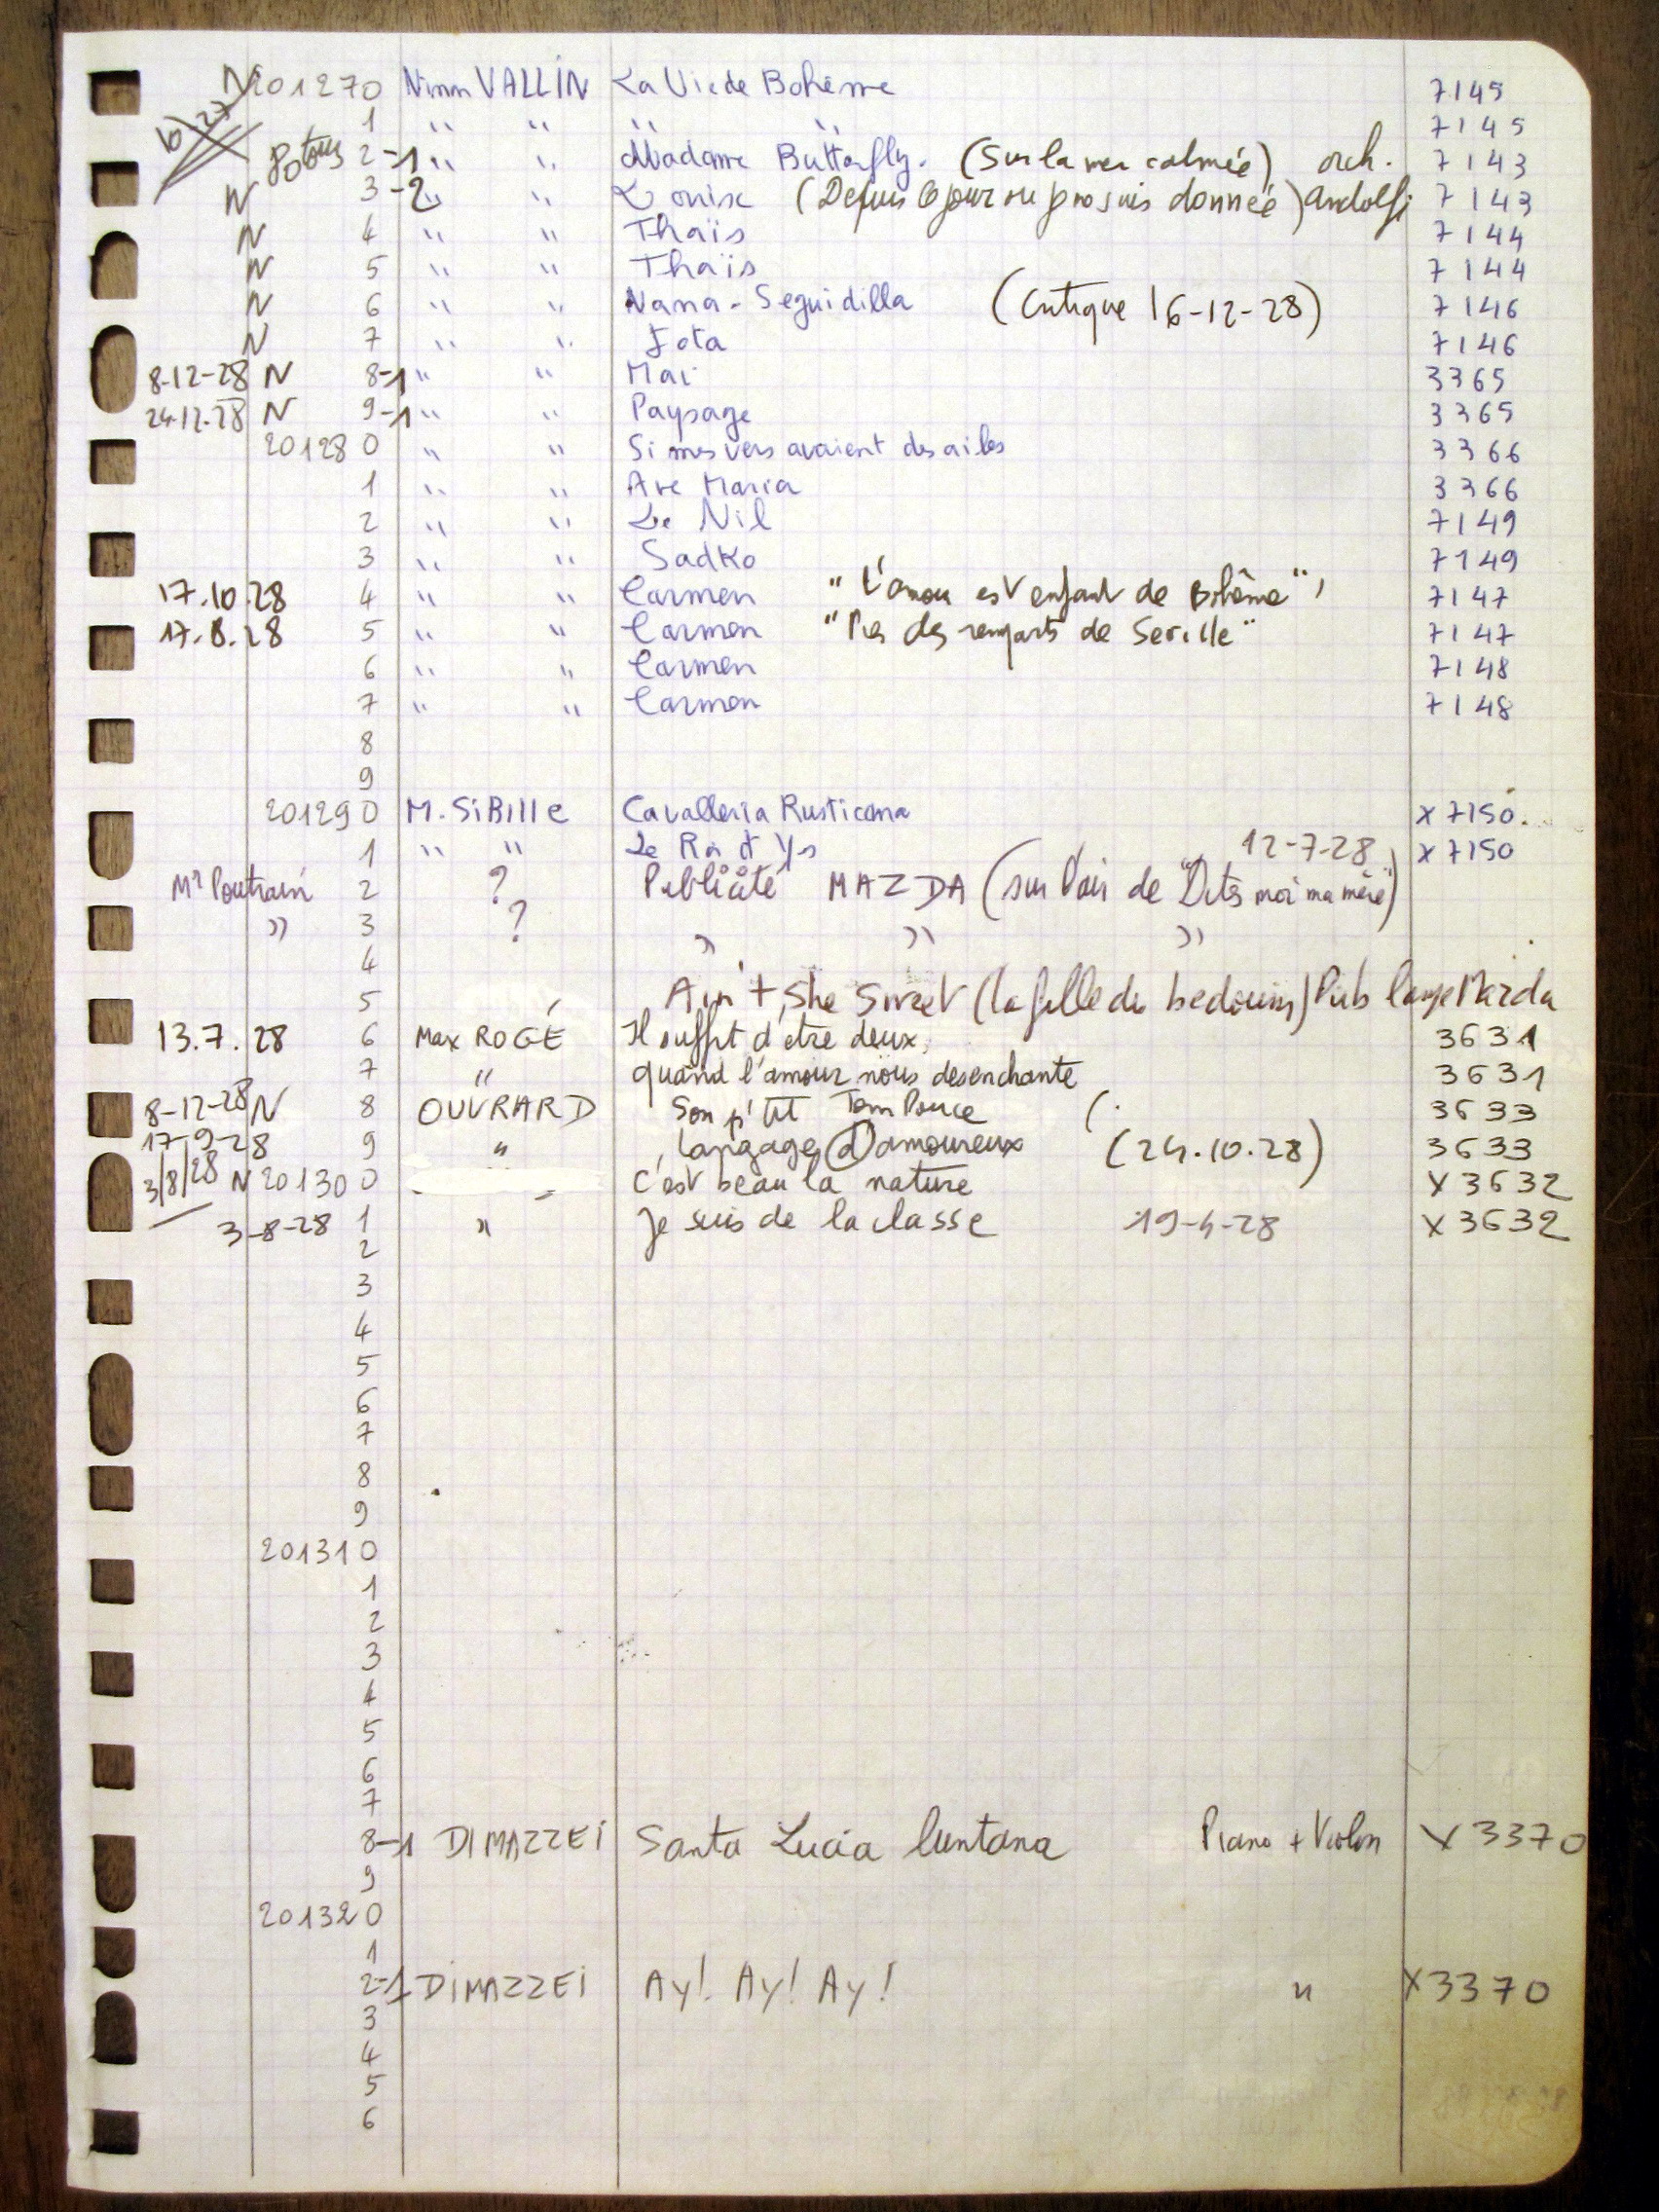 N 201270 Ninon VALLIN La Vie de Bohème 7145
1 " " " " 7145
Potous 2-1 " " Madame Butterfly. (Sur la mer calmée) orch. 7143
N 3-2 " " Louise (Depuis le jour ou je me suis donnée) Andolfi 7143
N 4 " " Thaïs 7144
N 5 " " Thaïs 7144
N 6 " " Nana - Seguidilla (Critique 16-12-28) 7146
N 7 " " Jota 7146
8-12-28 N 8-1 " " Mai 3365
24-12-28 N 9-1 " " Paysage 3365
201280 " " Si mes vers avaient des ailes 3366
1 " " Ave Maria 3366
2 " " Le Nil 7149
3 " " Sadko 7149
17.10.28 4 " " Carmen "L'amour est enfant de Bohême" 7147
17.8.28 5 " " Carmen "Près des remparts de Seville" 7147
6 " " Carmen 7148
7 " " Carmen 7148
8
9
201290 M. SiBille Cavalleria Rusticana X 7150.
1 " " Le Roi d'Ys 12-7-28 X 7150
Mr Poutrain 2 ? Publicité MAZDA (sur l'air de "Dites moi ma mère")
" 3 ? " " "
4
5 Ain't She Sweet (la fille du bedouin) Pub lampe Mazda
13.7.28 6 Max ROGÉ Il suffit d'etre deux 3631
7 " quand l'amour nous desenchante 3631
8-12-28 N 8 OUVRARD Son p'tit Tom Pouce ( 3633
17-9-28 9 " Langage d'amoureux (24.10.28) 3633
3/8/28 N 201300 C'est beau la nature X 3632
3-8-28 1 " Je suis de la classe 19-4-28 X 3632
2
3
4
5
6
7
8
9
201310
1
2
3
4
5
6
7
8-1 DI MAZZEI Santa Lucia luntana Piano + Violon X 3370
9
201320
1
2-1 DI MAZZEI Ay! Ay! Ay! " X3370
3
4
5
6